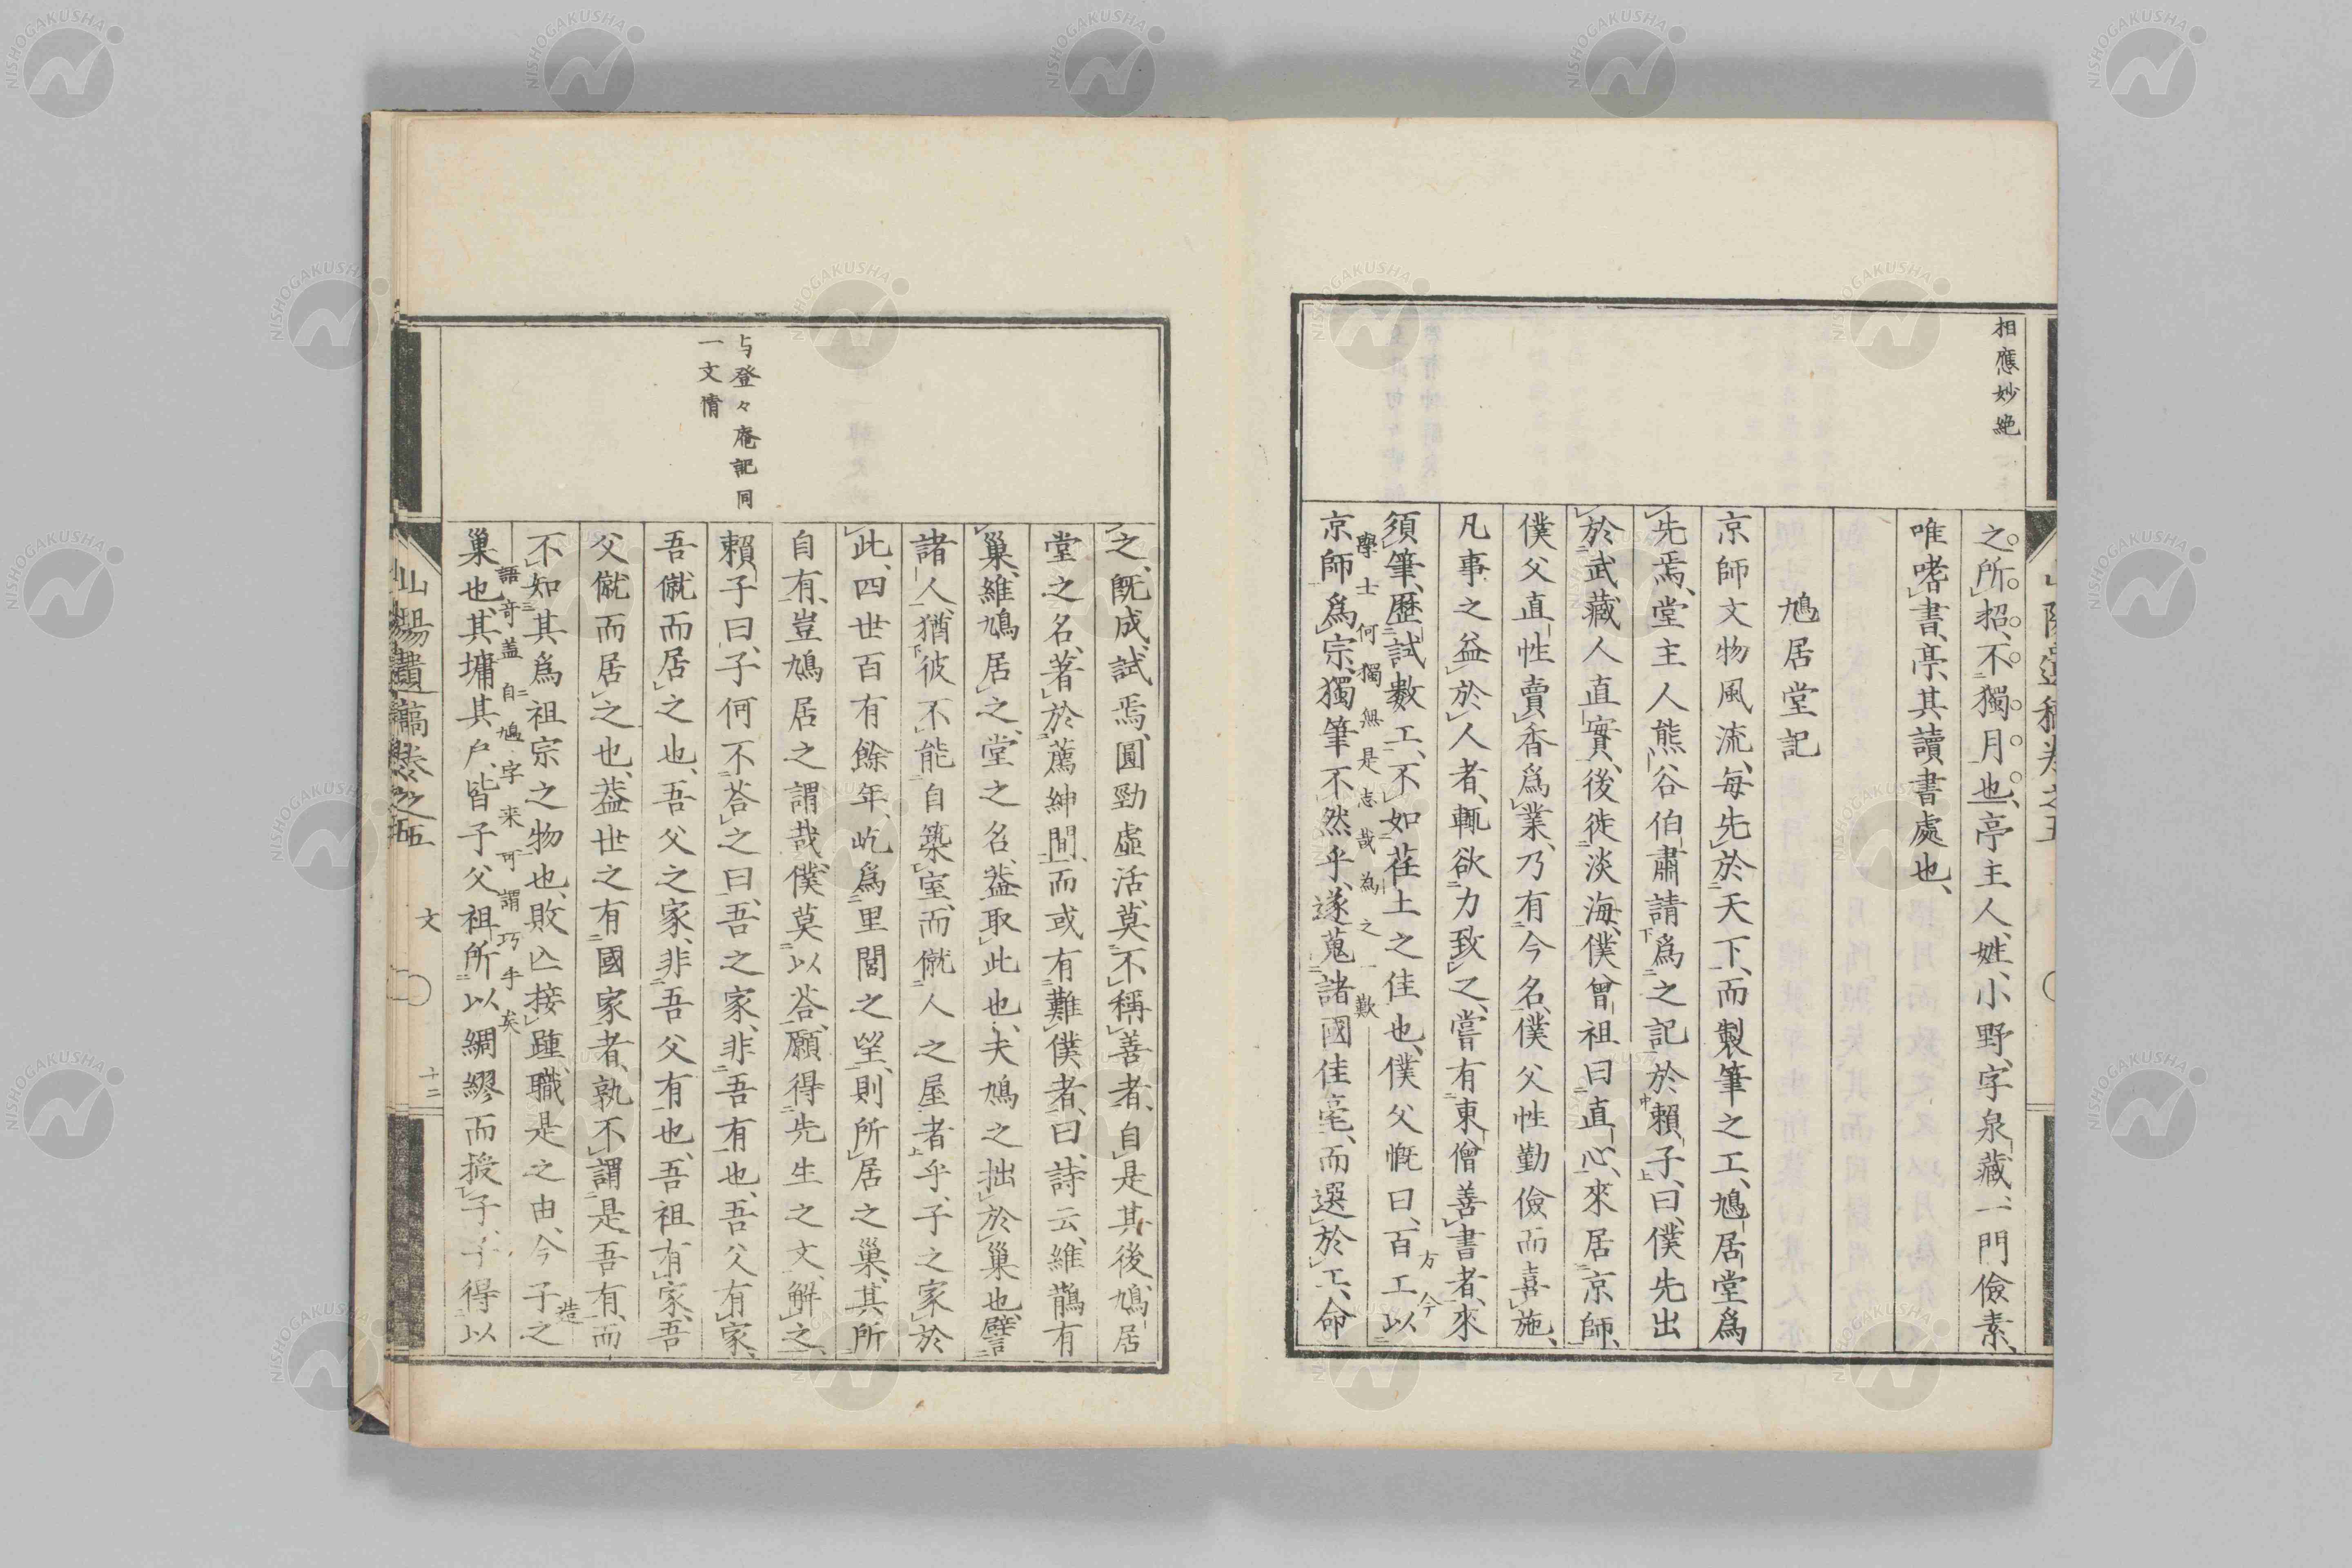 相應妙絶
之所招、不獨月也、亭主人、姓小野、字泉藏、一門儉素、
唯嗜書、亭其讀書處也、
鳩居堂記
京師文物風流、每先於天下、而製筆之工、鳩居堂爲
先焉、堂主人熊谷伯肅請爲之記於賴子、曰、僕先出
於武藏人直實、後徙淡海、僕曾祖曰直心、來居京師、
僕父直性賣香爲業、乃有今名、僕父性勤儉而喜施、
凡事之益於人者、輒欲力致之、嘗有東僧善書者、來
方今
須筆、歷試數工、不如在土之佳也、僕父慨曰、百工以
學士何獨無是志哉為之一歎
京師爲宗、獨筆不然乎、遂蒐諸國佳毫、而選於工、命
之、旣成、試焉、圓勁虛活、莫不稱善者、自是其後鳩居
堂之名、著於薦紳間、而或有難僕者、曰、詩云、維鵲有
巢、維鳩居之、堂之名、葢取此也、夫鳩之拙於巢也、譬
諸人、猶彼不能自築室、而僦人之屋者乎、子之家於
此、四世百有餘年、屹爲里閭之望、則所居之巢、其所
自有、豈鳩居之謂哉、僕莫以荅、願得先生之文、解之、
与登々庵記同
一文情
賴子曰、子何不荅之曰、吾之家、非吾有也、吾父有家、
吾僦而居之也、吾父之家、非吾父有也、吾祖有家、吾
父僦而居之也、葢世之有國家者、孰不謂是吾有、而
造
不知其爲祖宗之物也、敗亾接踵、職是之由、今子之
語奇蓋自鳩字来可謂巧手矣
巢也、其墉其戶、皆子父祖所以綢繆而授子、子得以
山陽遺稿卷之五
文
十二